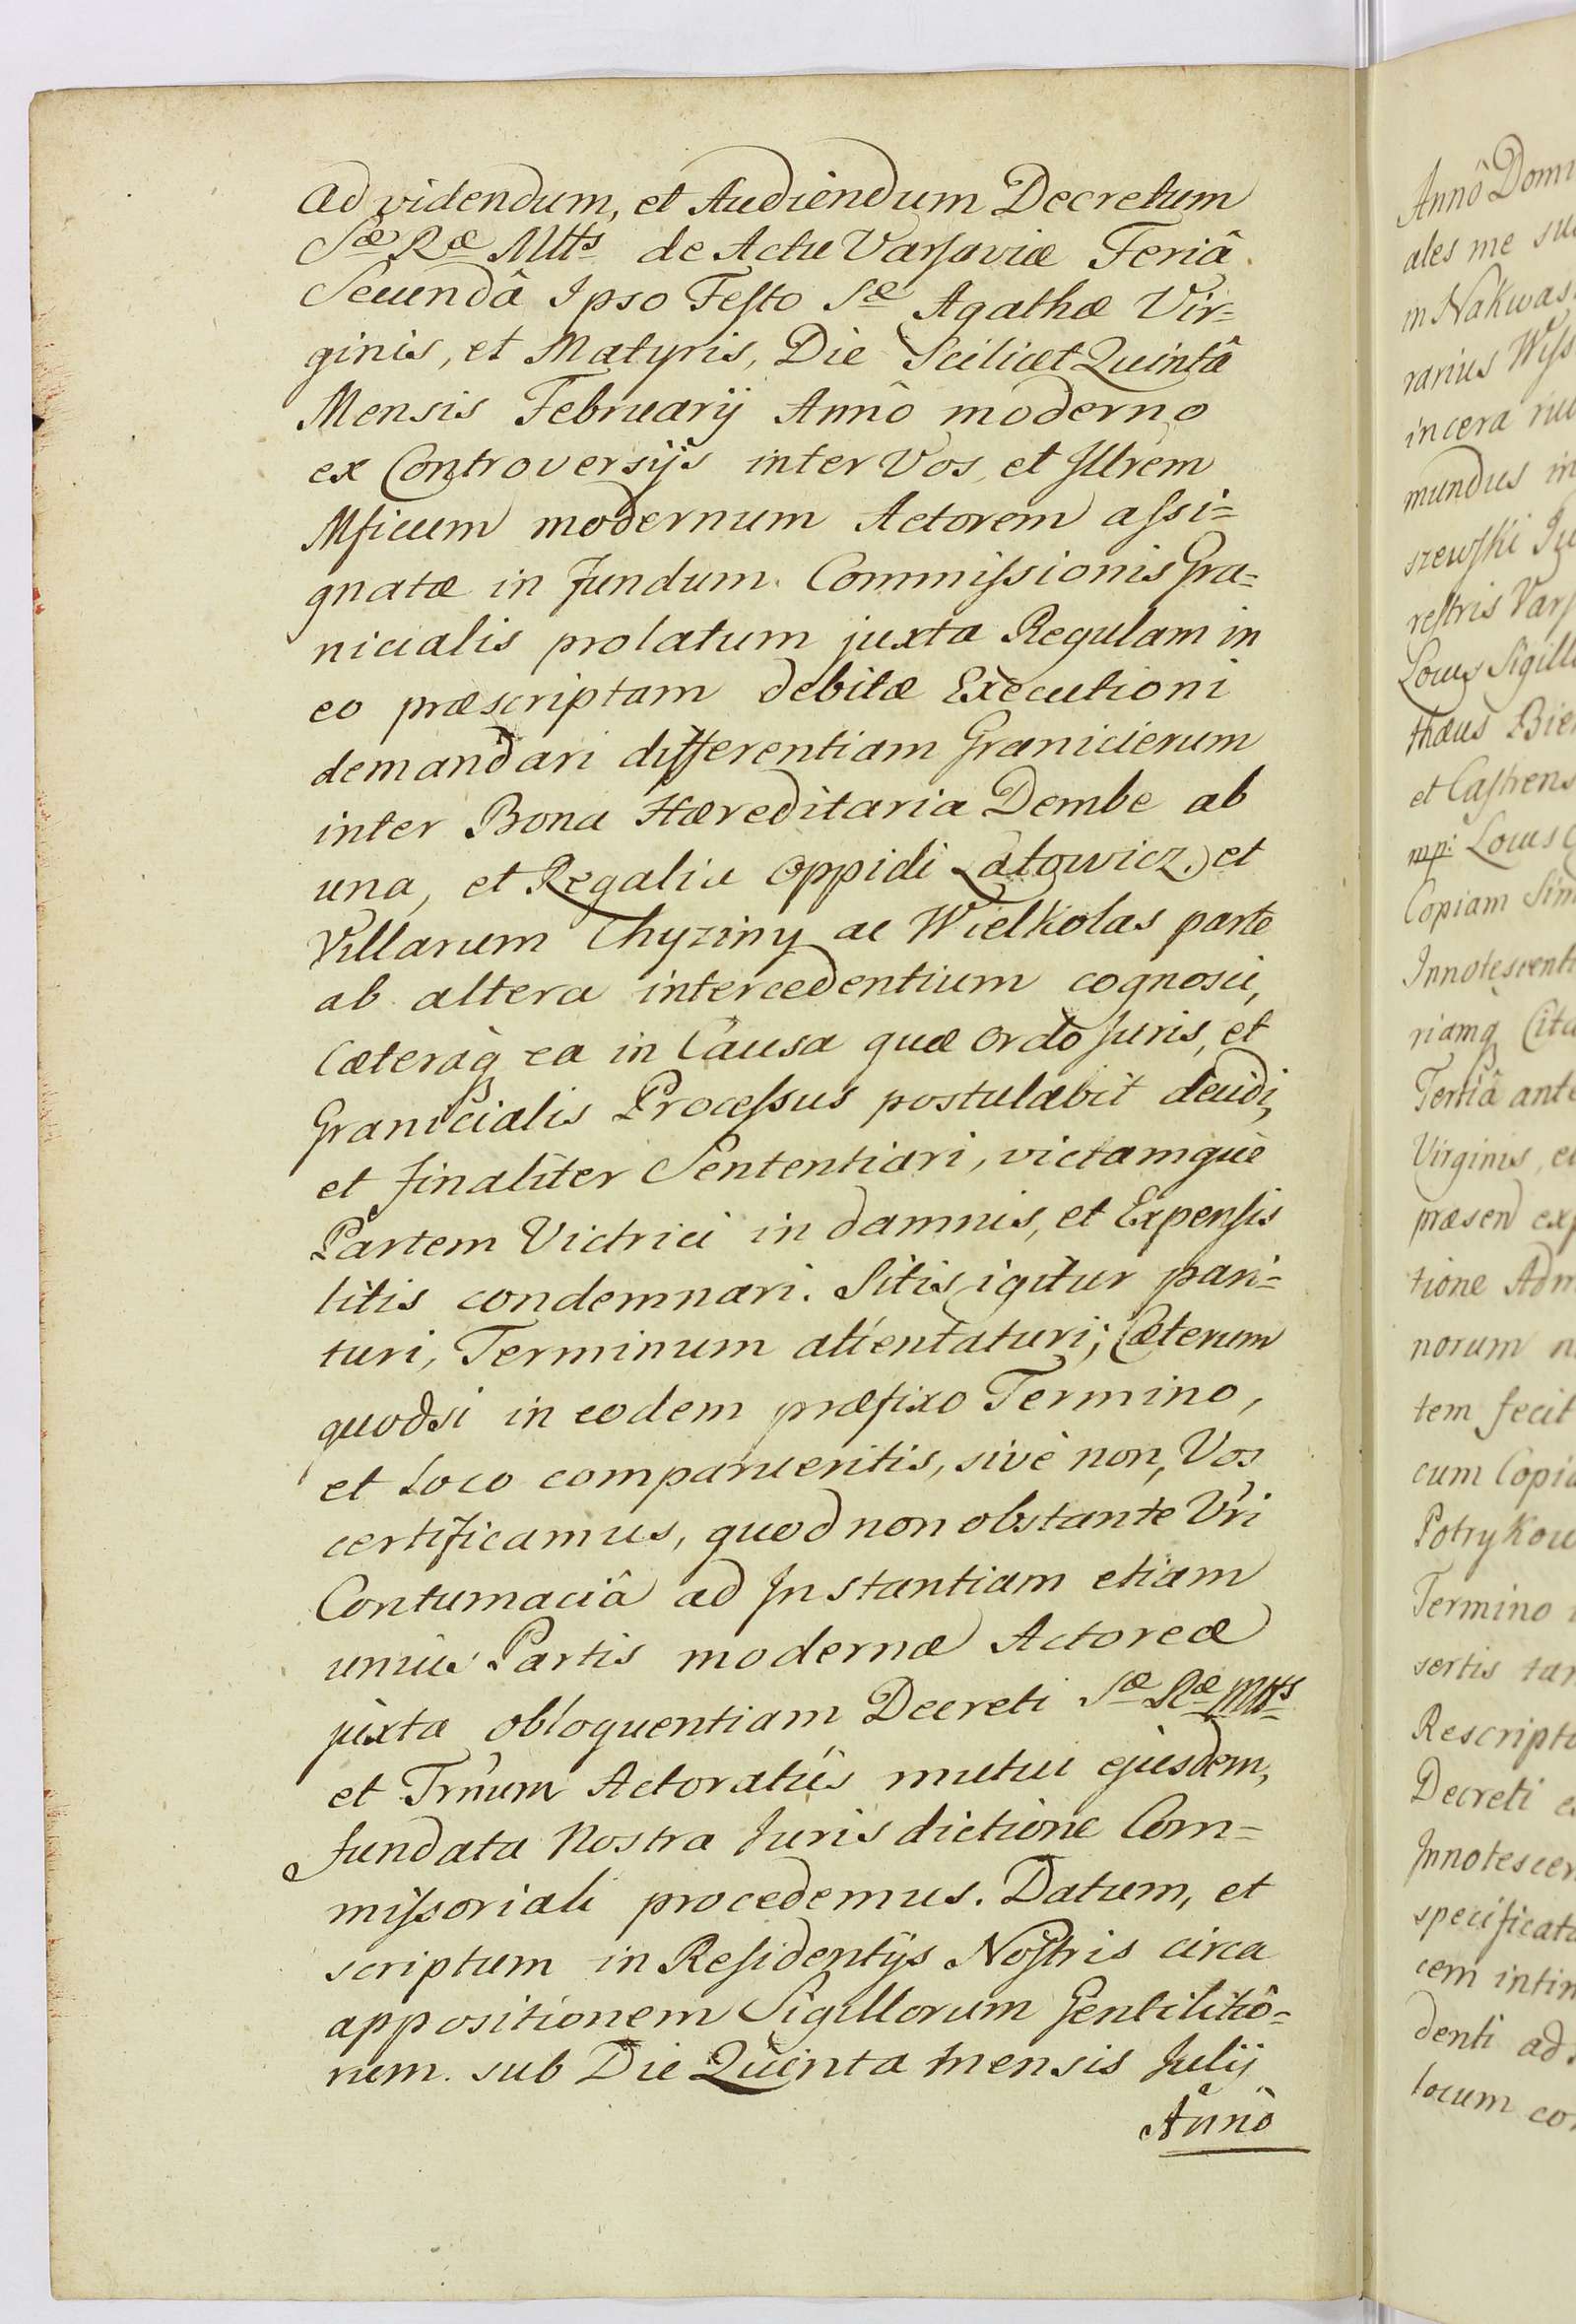 ad videndum, et Audiendum Decretum
Sæ Ræ Mtts de Actu Varsaviæ Feriâ
Secundâ Ipso Festo Sæ Agathæ Vir=
ginis, et Matyris, Die Scilicet Quintâ
Mensis Februarij Annô moderno
ex Controversijs inter Vos, et Jllrem
Mficum modernum Actorem assi=
gnatæ in fundum Commissionis Gra=
nicialis prolatum juxta Regulam in
eo præscriptam debitæ Executioni
demandari differentiam Granicierum
inter Bona Hæreditaria Dembe ab
una, et Regalia Oppidi Latowicz, et
Villarum Chyziny ac Wielkolas parte
ab altera intercedentium cognosci,
Cæteraq ea in Causa quæ Ordo Juris, et
Granicialis Processus postulabit decidi,
et finaliter Sententiari, victamque
Partem Victrici in damnis, et Expensis
litis condemnari. Sitis igitur pari=
turi, Terminum attentaturi; Cæterum
quodsi in eodem præfixo Termino,
et Loco comparueritis, sivè non, Vos
certificamus, quod non obstante Vri
Contumaciâ ad Instantiam etiam
unius Partis modernæ Actoreæ
juxta obloquentiam Decreti Sæ Ræ Mtts
et Trnum Actoratûs mutui ejusdem,
fundata Nostra Jurisdictione Com=
missoriali procedemus. Datum, et
scriptum in Residentijs Nostris circa
appositionem Sigillorum Gentilitio=
rum. sub Die Quinta mensis Julij
Annô
Annô Domi
ales me su
in Nakwas
rarius Wiss
in cera ru
mundus in
szewski Ju
restris Vars
Locus Sigill
thæus Bie
et Castrens
mp: Locus
Copiam Sim
Innotescenti
riamq Cita
Tertiâ ante
Virginis, e
præsend exp
tione Adm
norum n
tem fecit
cum Copia
Potrykow
Termino
sertis tam
Rescripto
Decreti e
Innotescen
specificat
cem intim
denti ad
locum co